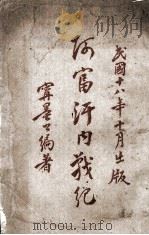 民國十八年十月出版
阿富汗內戰紀
甯墨公編著
mtoou.info